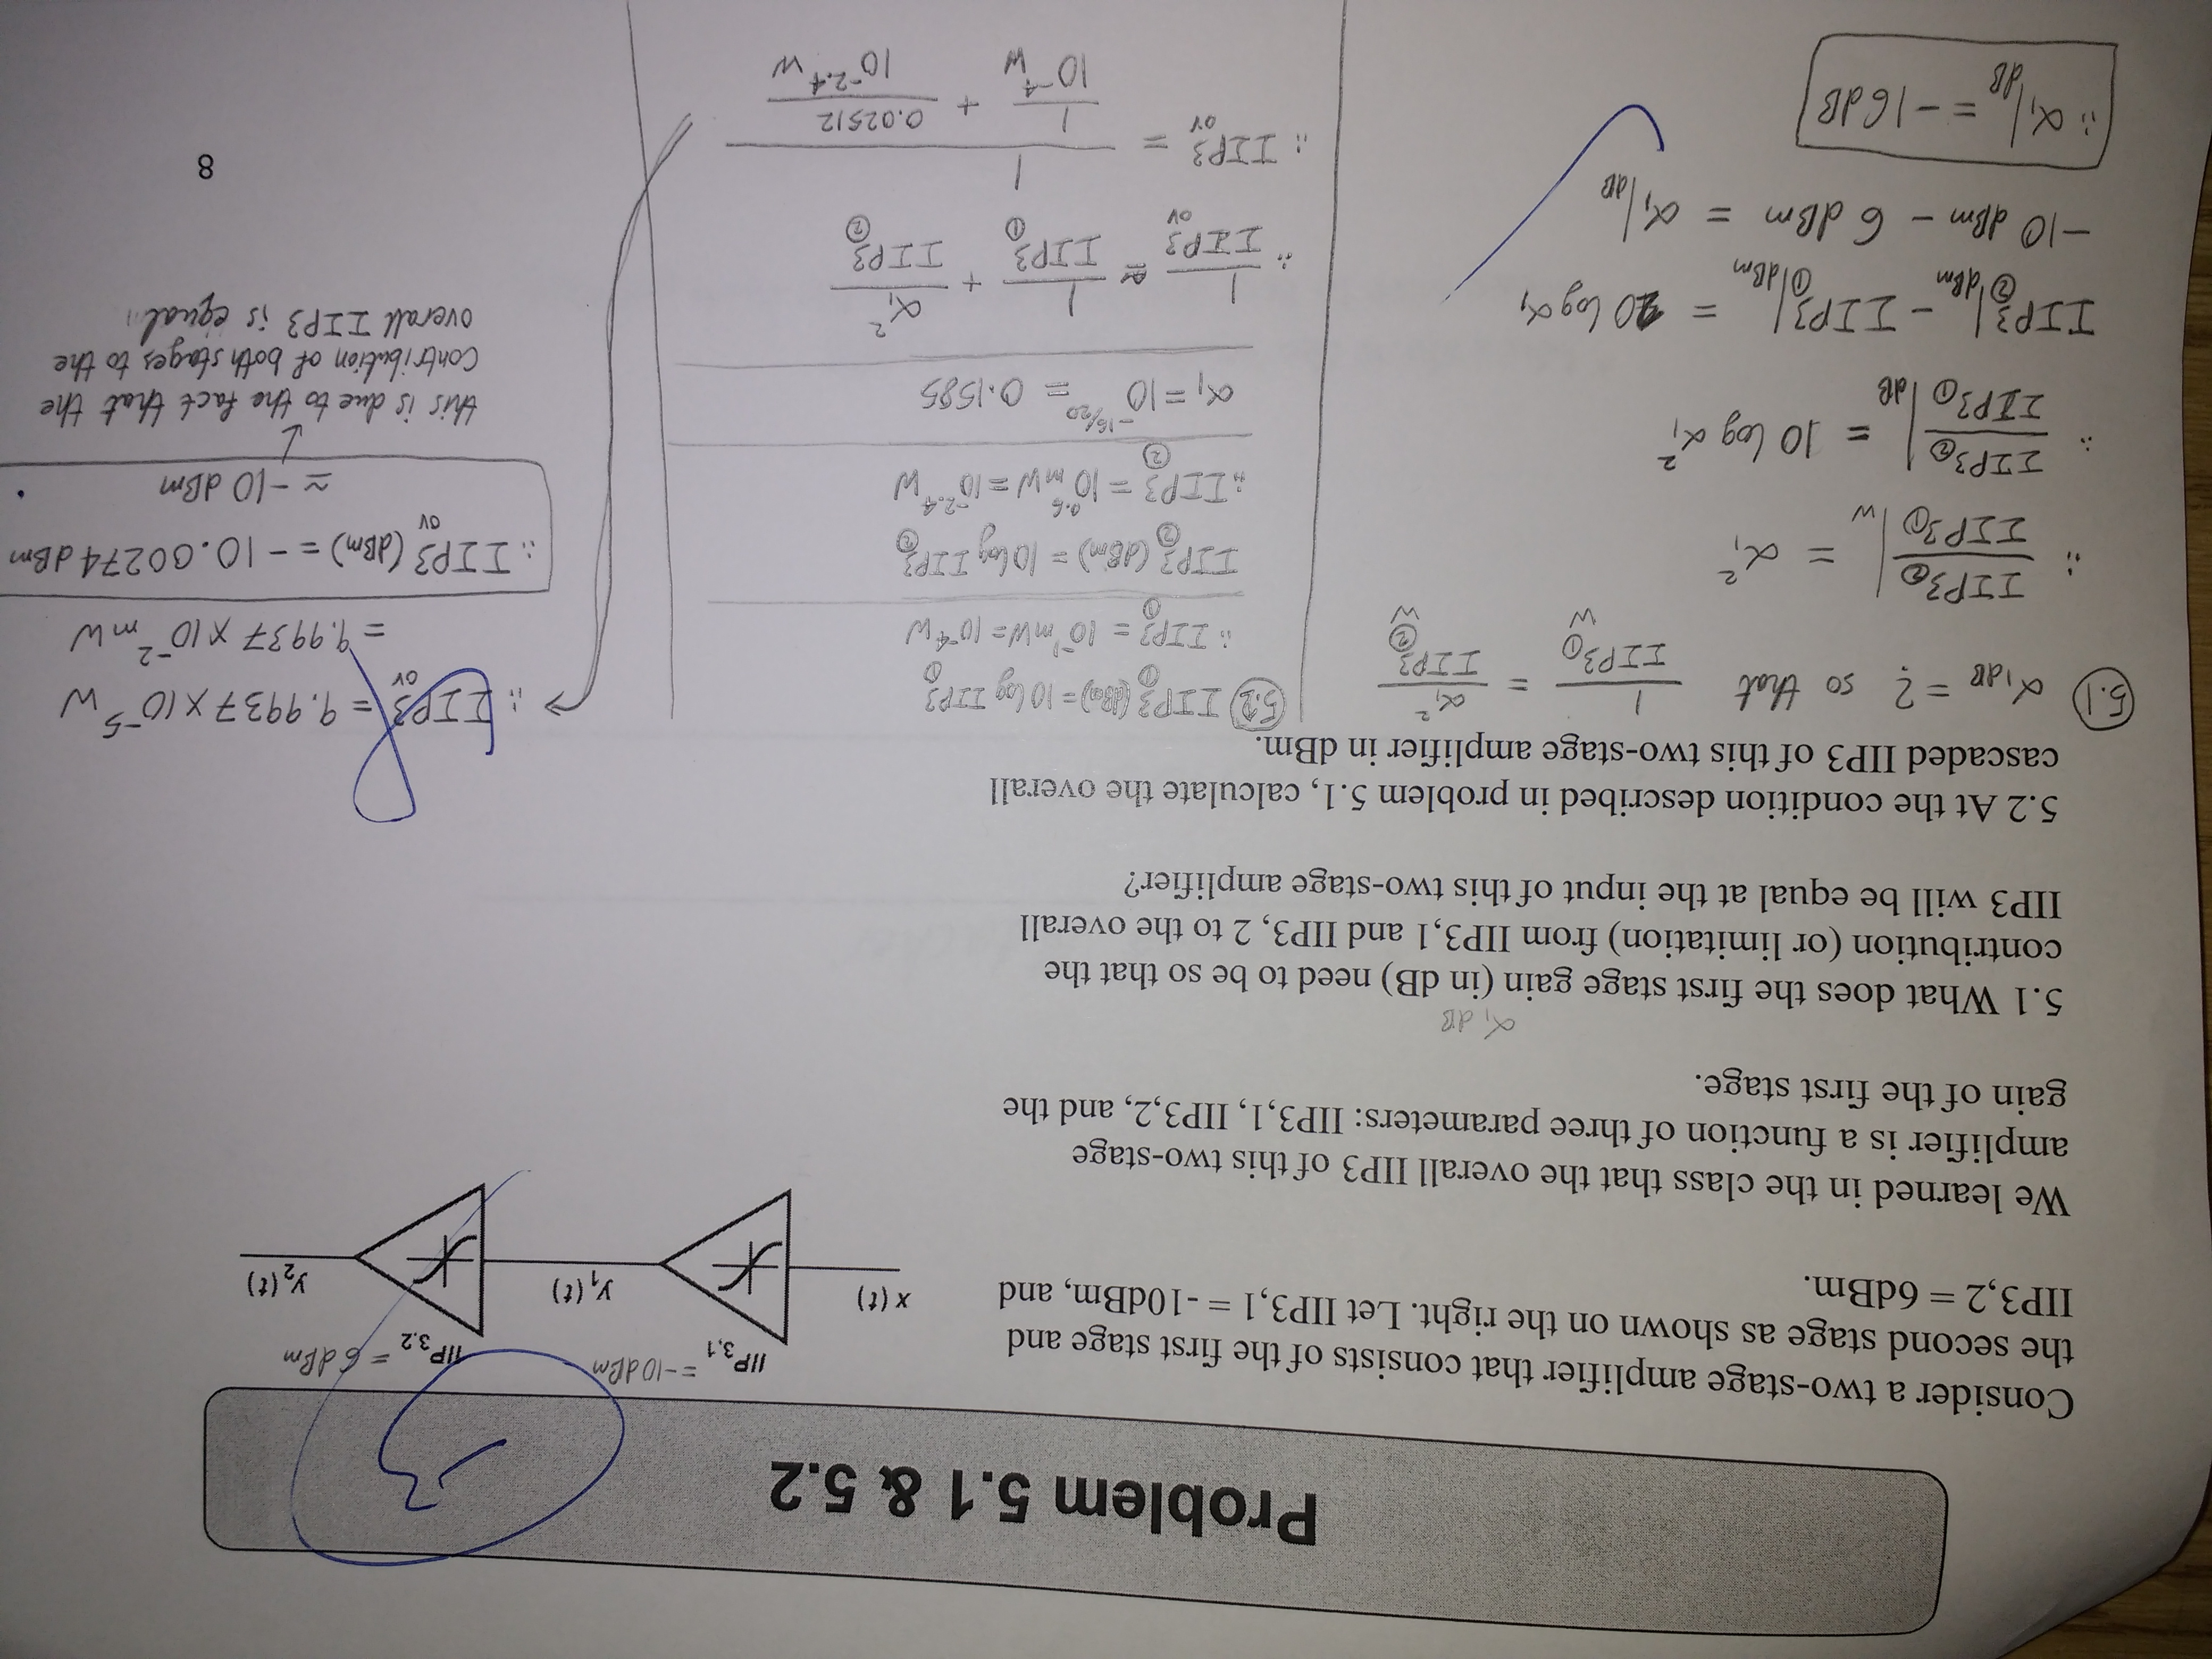 Problem 5.1 & 5.2
3
Consider a two-stage amplifier that consists of the first stage and
the second stage as shown on the right. Let IIP3,1 = -10dBm, and
IIP3,2 = 6dBm.
IIP3,1 = -10dBm
IIP3,2 = 6dBm
x(t)
y1(t)
y2(t)
We learned in the class that the overall IIP3 of this two-stage
amplifier is a function of three parameters: IIP3,1, IIP3,2, and the
gain of the first stage.
α1dB
5.1 What does the first stage gain (in dB) need to be so that the
contribution (or limitation) from IIP3,1 and IIP3, 2 to the overall
IIP3 will be equal at the input of this two-stage amplifier?
5.2 At the condition described in problem 5.1, calculate the overall
cascaded IIP3 of this two-stage amplifier in dBm.
5.1 α1dB = ? so that 1/IIP3①W = α1²/IIP3②W
∴ IIP3②/IIP3①|W = α1²
∴ IIP3②/IIP3①|dB = 10 log α1²
IIP3②|dBm - IIP3①|dBm = 20 log α1
-10 dBm - 6 dBm = α1|dB
∴ α1|dB = -16dB
5.2 IIP3①(dBm) = 10 log IIP3①
∴ IIP3① = 10⁻¹ mW = 10⁻⁴ W
IIP3②(dBm) = 10 log IIP3②
∴ IIP3② = 10^0.6 mW = 10^-2.4 W
α1 = 10^-16/20 = 0.1585
∴ 1/IIP3ov ≅ 1/IIP3① + α1²/IIP3②
∴ IIP3ov = 1/(1/10⁻⁴W + 0.02512/10^-2.4 W)
∴ IIP3ov = 9.9937 × 10⁻⁵ W
= 9.9937 × 10⁻² mW
∴ IIP3ov (dBm) = -10.00274 dBm
≃ -10 dBm
this is due to the fact that the
contribution of both stages to the
overall IIP3 is equal.
8